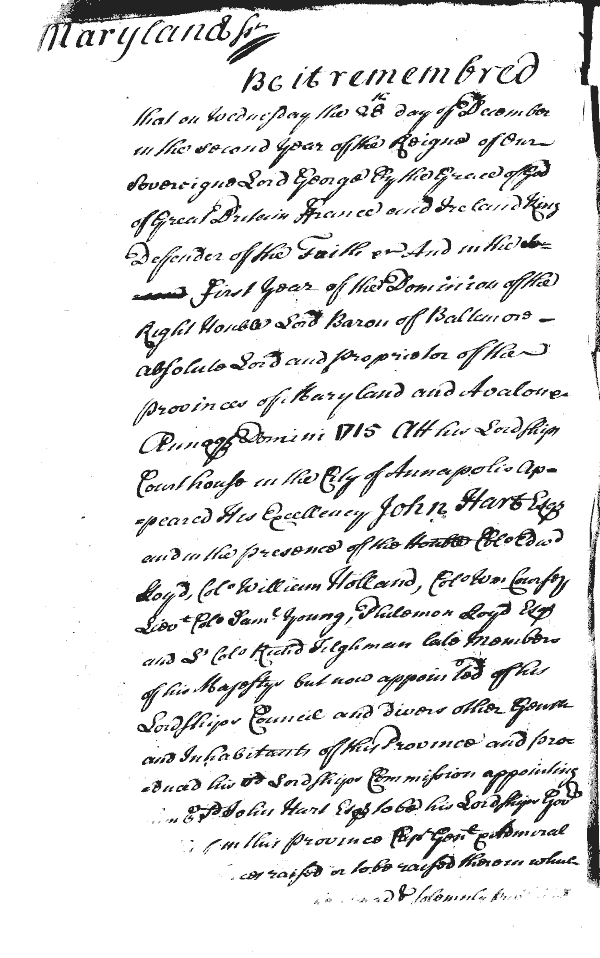 Maryland ss
Be it remembred
that on Wednesday the 28th day of December
in the Second Year of the Reigne of Our
Sovereigne Lord George By the Grace of God
of Great Britain France and Ireland King
Defender of the Faith &c And in the
First Year of the Dominion of the
Right Honble Lord Baron of Baltimore
absolute Lord and proprietor of the
provinces of Maryland and Avalone
Annoq Domini 1715 Att his Lordships
Court house in the City of Annapolis Ap=
=peared His Excellency John Hart Esqr
and in the presence of the Honble Colo Edwd
Lloyd, Colo William Holland, Colo Wm Coursey
Lievt Colo Saml Young, Philemon Lloyd Esqr
and Lt Colo Richd Tilghman late Members
of his Majestys but now appointed of his
Lordships Council and divers other Gentn
and Inhabitants of this Province and pro=
=duced his sd Lordships Commission appointing
sd John Hart Esqr to be his Lordships Govr
in this province Capt Genl & Admiral
raised or to be raised therein which
solemnly